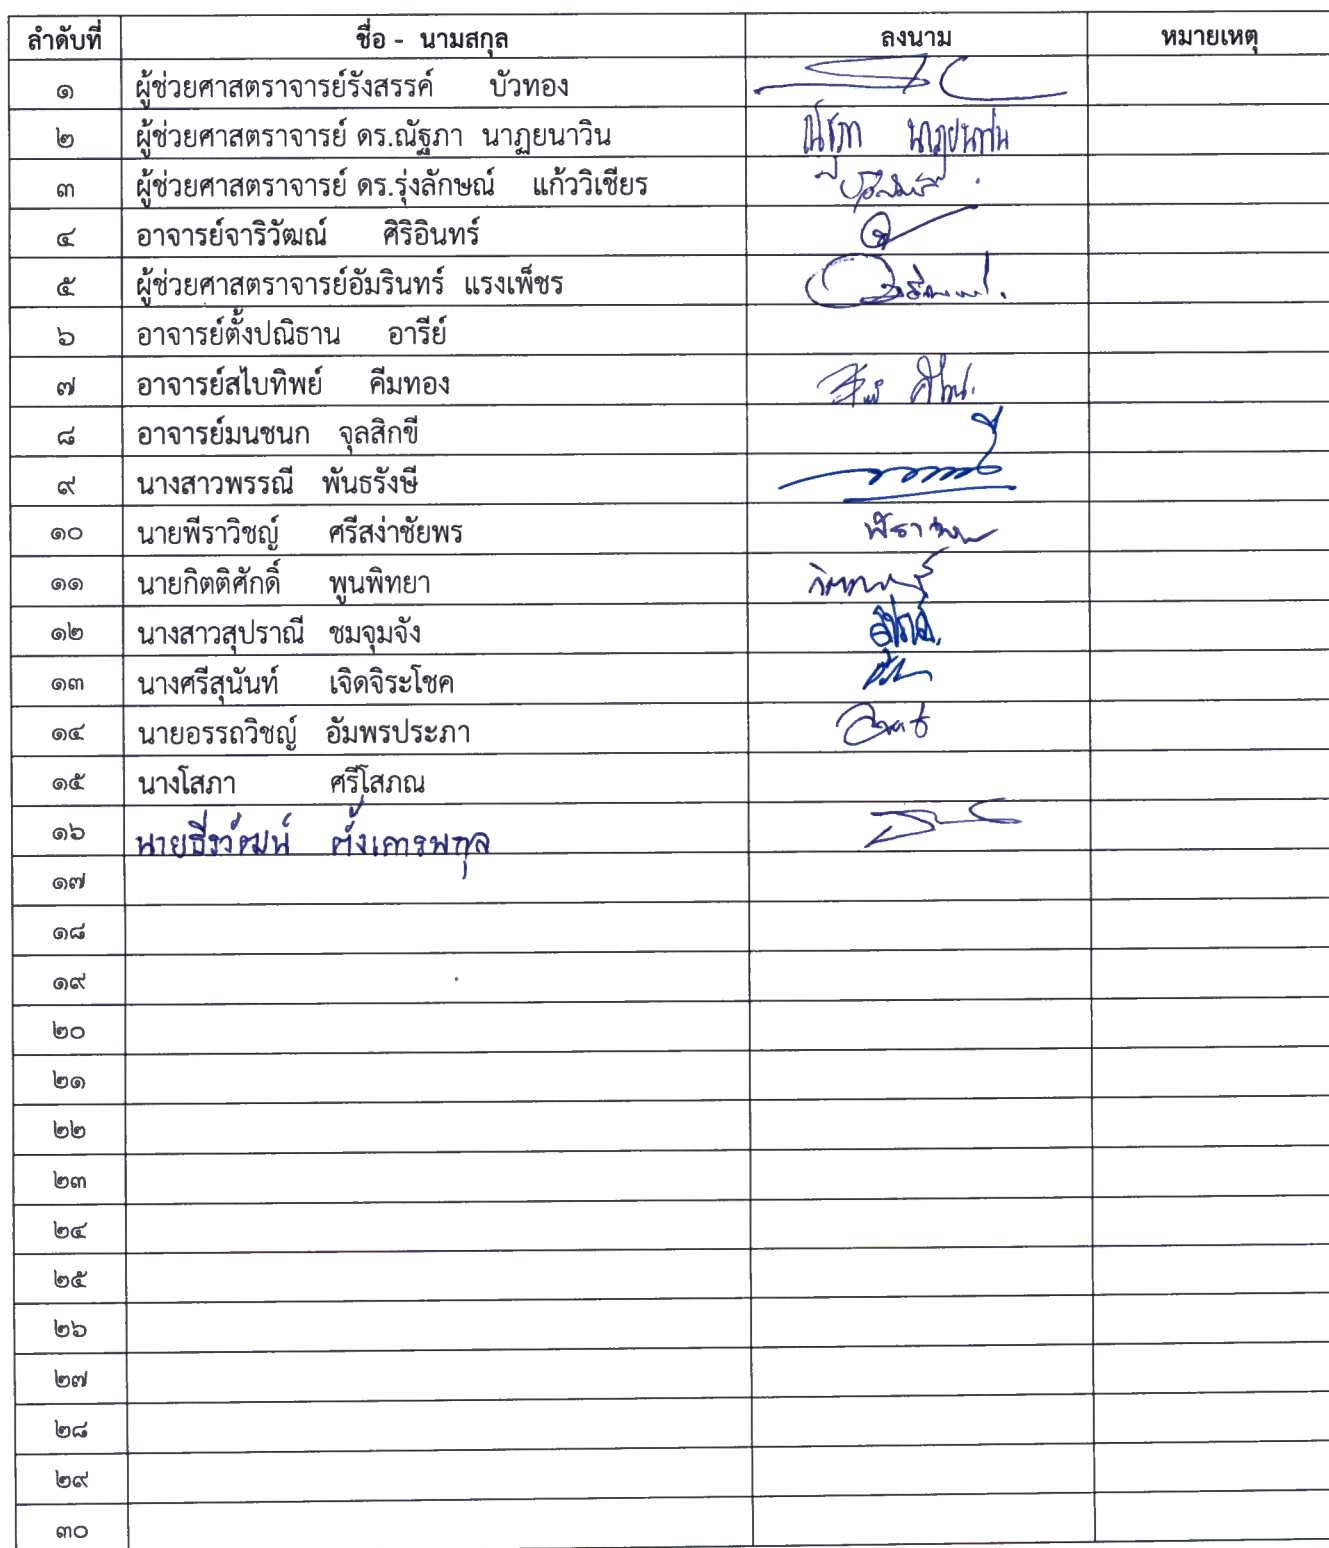 ลำดับที่ ชื่อ - นามสกุล ลงนาม หมายเหตุ
๑ ผู้ช่วยศาสตราจารย์รังสรรค์ บัวทอง
๒ ผู้ช่วยศาสตราจารย์ ดร.ณัฐภา นาฏยนาวิน ณัฐภา นาฏยนาวิน
๓ ผู้ช่วยศาสตราจารย์ ดร.รุ่งลักษณ์ แก้ววิเชียร
๔ อาจารย์จาริวัฒณ์ ศิริอินทร์
๕ ผู้ช่วยศาสตราจารย์อัมรินทร์ แรงเพ็ชร
๖ อาจารย์ตั้งปณิธาน อารีย์
๗ อาจารย์สไบทิพย์ คีมทอง
๘ อาจารย์มนชนก จุลสิกขี
๙ นางสาวพรรณี พันธรังษี
๑๐ นายพีราวิชญ์ ศรีสง่าชัยพร
๑๑ นายกิตติศักดิ์ พูนพิทยา
๑๒ นางสาวสุปราณี ชมจุมจัง
๑๓ นางศรีสุนันท์ เจิดจิระโชค
๑๔ นายอรรถวิชญ์ อัมพรประภา
๑๕ นางโสภา ศรีโสภณ
๑๖ นายธีรวัฒน์ ตั้งเคารพกุล
๑๗
๑๘
๑๙
๒๐
๒๑
๒๒
๒๓
๒๔
๒๕
๒๖
๒๗
๒๘
๒๙
๓๐